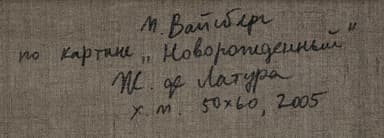 М. Вайсберг
по картине „Новорожденный"
Ж. де Латура
х. м. 50x60, 2005